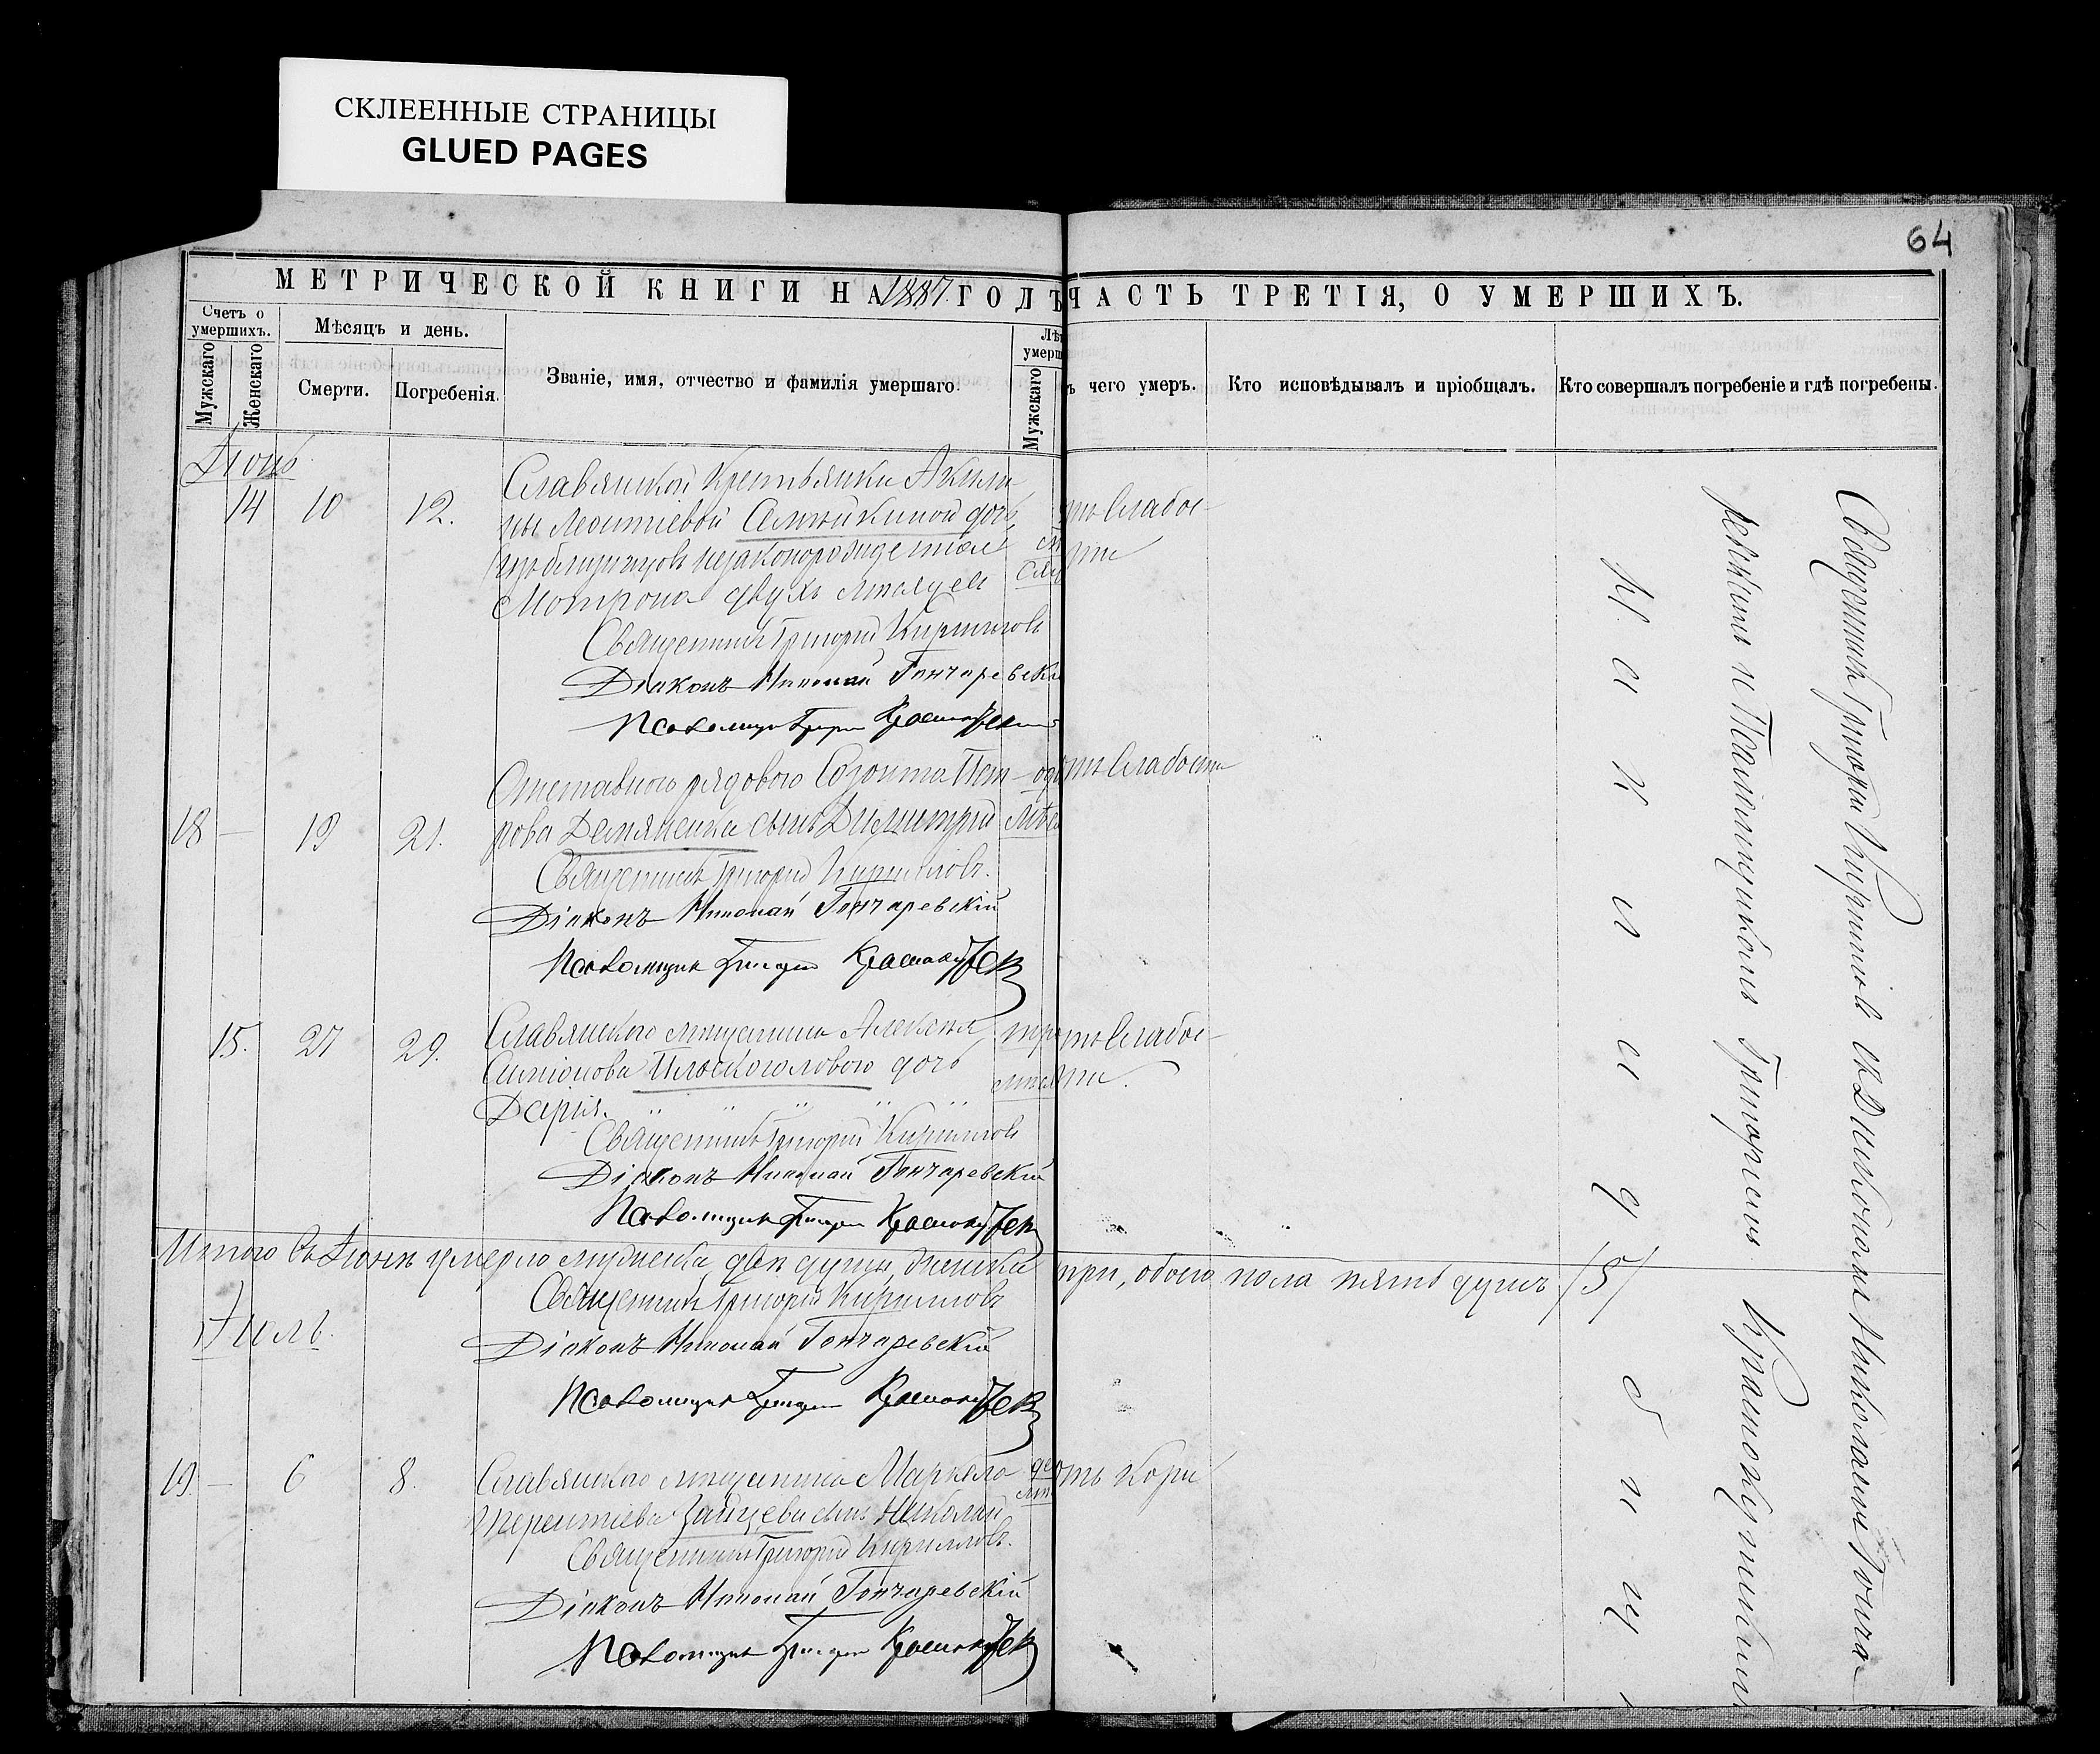 СКЛЕЕННЫЕ СТРАНИЦЫ
GLUED PAGES
64
МЕТРИЧЕСКОЙ КНИГИ НА 1887 ГОДЪ
ЧАСТЬ ТРЕТІЯ, О УМЕРШИХЪ.
Счетъ о умершихъ.
Мужскаго
Женскаго
Мѣсяцъ и день.
Смерти.
Погребенія.
Званіе, имя, отчество и фамилія умершаго.
Лѣ
умерш
Мужскаго
ъ чего умеръ.
Кто исповѣдывалъ и пріобщалъ.
Кто совершалъ погребеніе и гдѣ погребены.
Іюнь
14 10 12.
Славянской Крестьянки Акили
ны Леонтіевой дочь
незаконорожденная
Матрона двухъ
отъ Слабос-
ти
Священникъ Григорій Кирилловъ
Діаконъ Николай Гончаревскій
Псаломщикъ Григорій Краснокутскій
18 — 19 21.
Отставного рядового Созонта Пет-
рова Демяненка сынъ Димитрій
отъ Слабости
Священникъ Григорій Кирилловъ.
Діаконъ Николай Гончаревскій
Псаломщикъ Григорій Краснокутск
15. 27 29.
Славянского мещанина Алексея
Симіонова Плоскоголового дочь
Дарія.
отъ Слабос-
ти.
Священникъ Григорій Кирилловъ
Діаконъ Николай Гончаревскій
Псаломщикъ Григорій Краснокутск
Итого въ Іюнѣ умерло мужеска двѣ души, женска три, обоего пола пять душъ /5/
Священникъ Григорій Кирилловъ
Іюль.
Діаконъ Николай Гончаревскій
Псаломщикъ Григорій Краснокутск
19. — 6 8.
Славянского мещанина Маркела
Терентіева Зайцева сынъ Николай
отъ Кори
Священникъ Григорій Кирилловъ.
Діаконъ Николай Гончаревскій
Псаломщикъ Григорій Краснокутск
Священникъ Григорій Кирилловъ съ Діакономъ Николаемъ Гонча-
ревскимъ и Псаломщикомъ Григоріемъ Краснокутскимъ